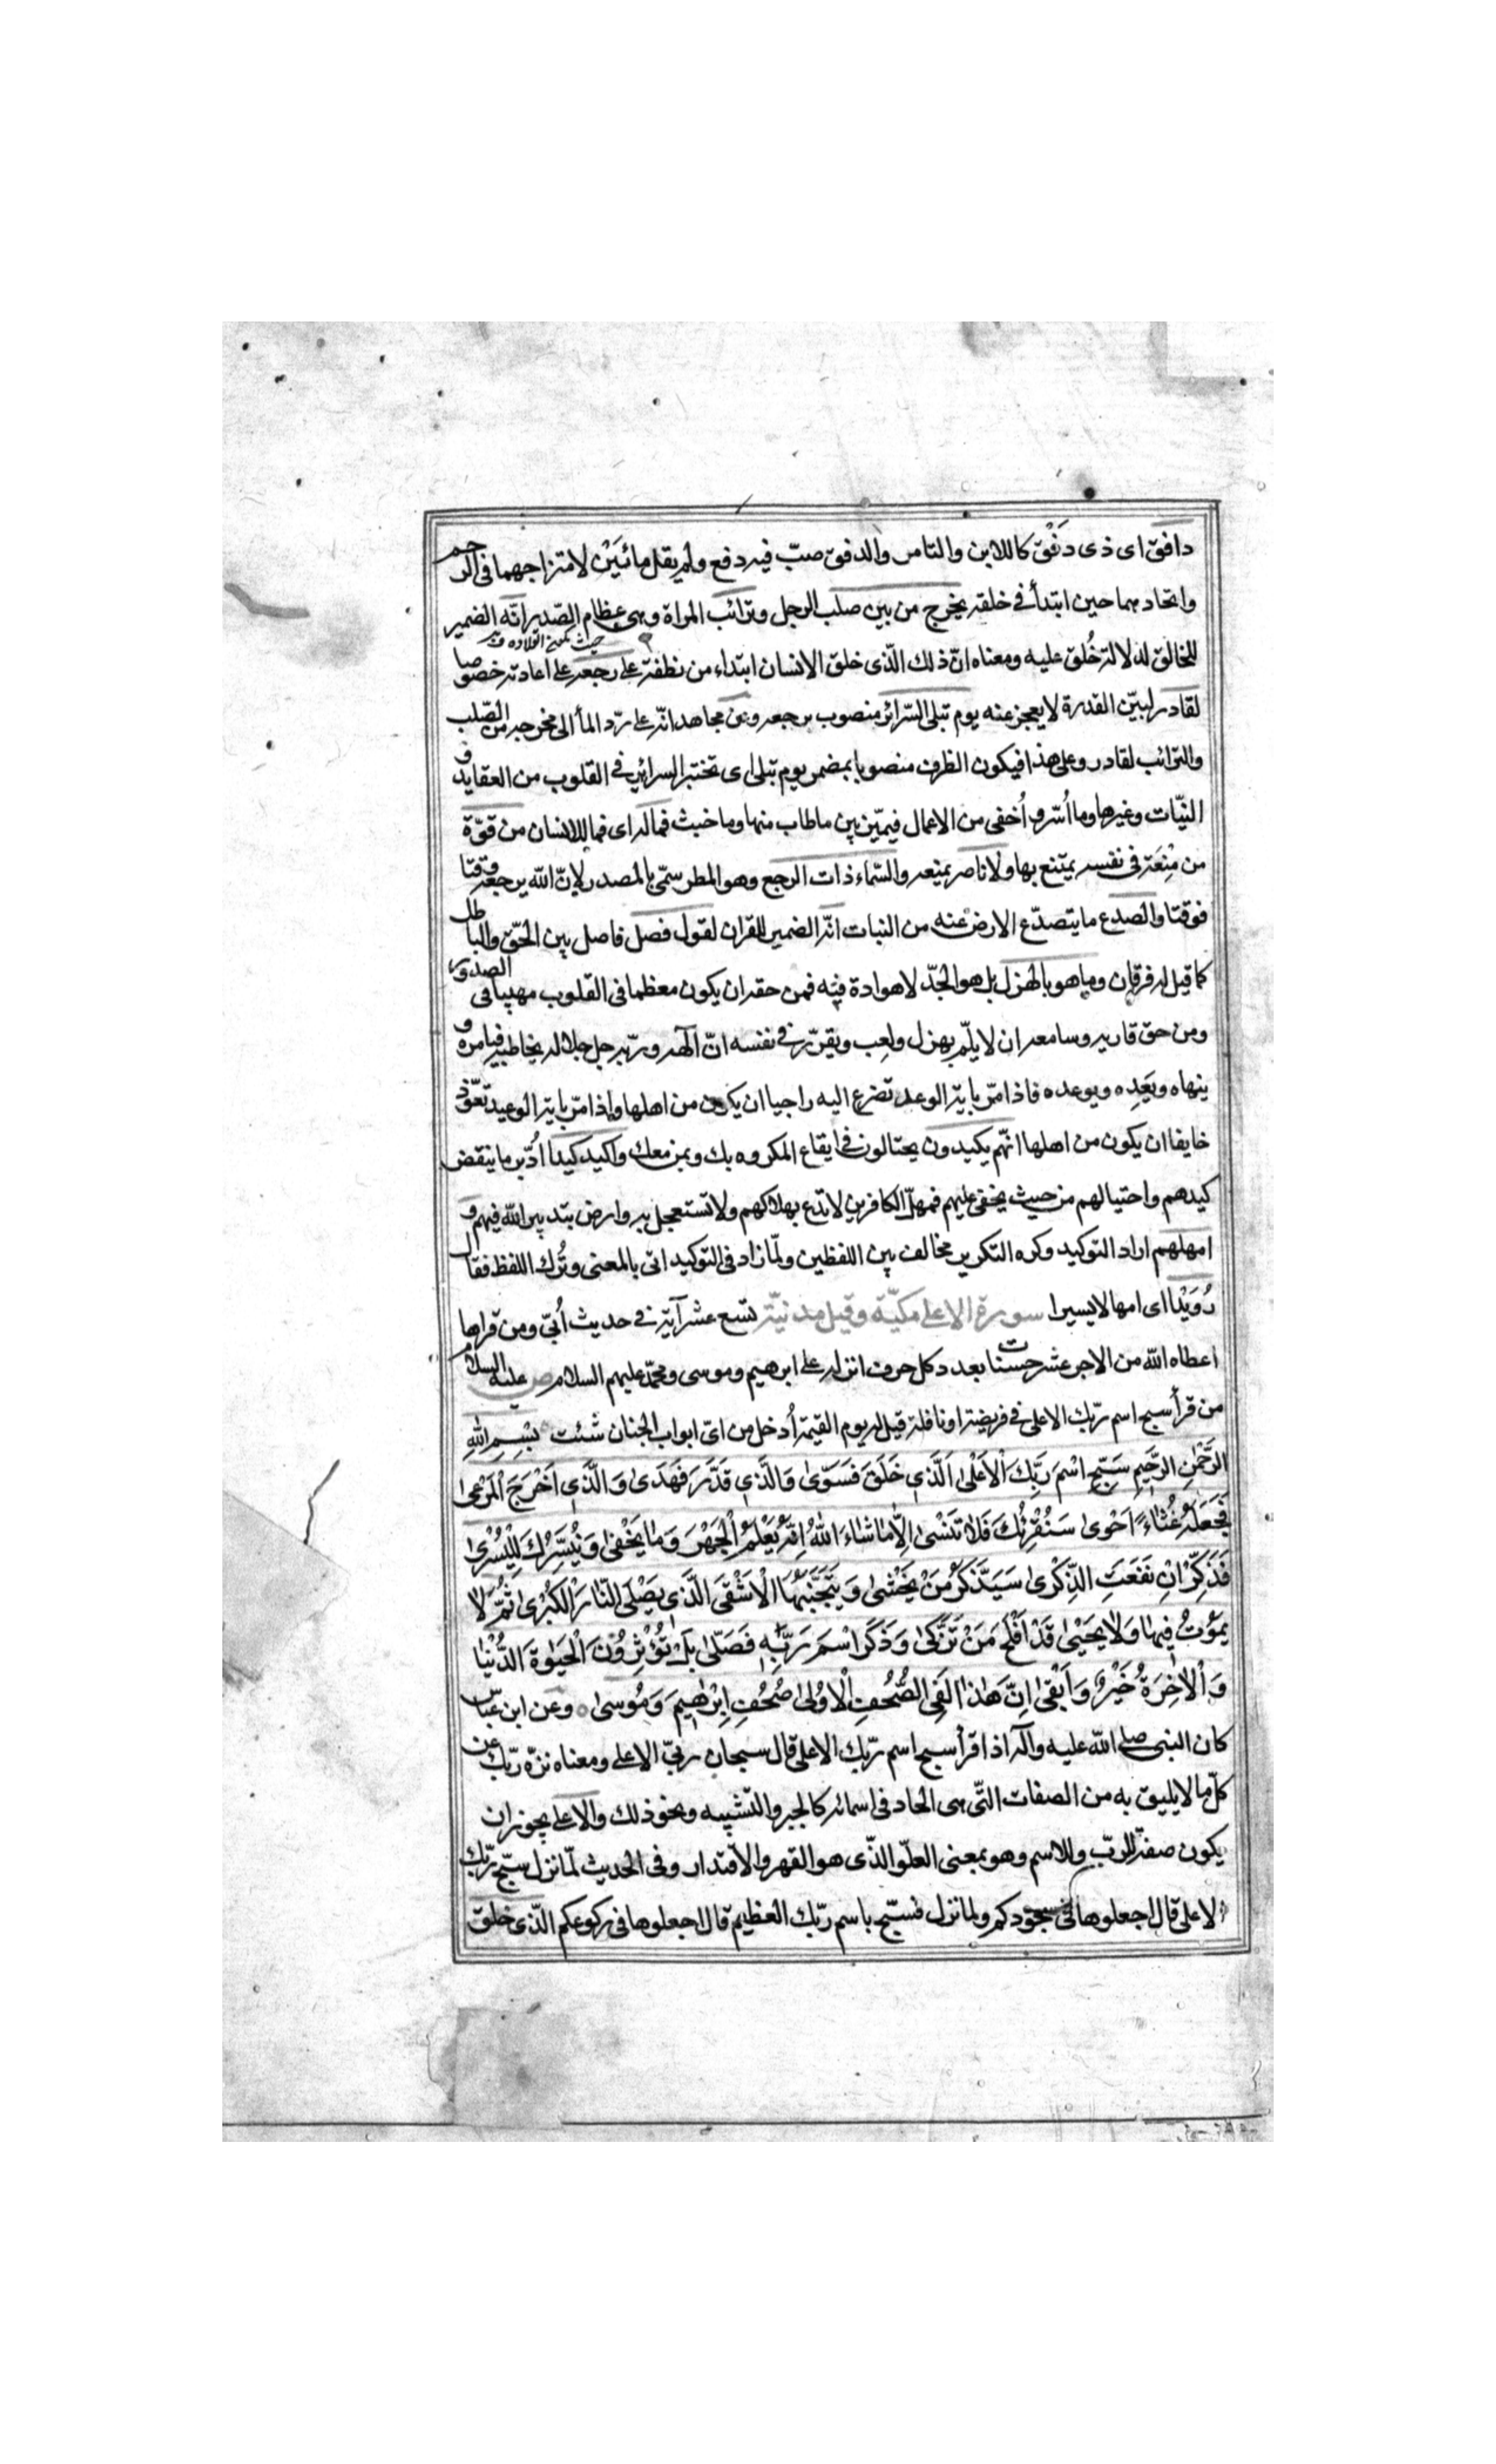 دافق اى ذى دَفْق كاللابن والتامر والدفق صبّ فيه دفع ولم يقل مائَيْن لامتزاجهما فى الرحم
واتحادهما حين ابتدأ فى خلقه يخرج من بين صلب الرجل وترائب المراة وهى عظام الصّدر انّه الضمير
حيث
للخالق لدلالة خُلق عليه ومعناه انّ ذلك الّذى خلق الانسان ابتداء من نطفة على رجعه على اعادته خصوصا
لقادر لبيّن القدرة لا يعجز عنه يوم تبلى السّرائر منصوب برجعه وعن مجاهد انّه على ردّ المأ الى مخرجه من الصّلب
والترائب لقادر وعلى هذا فيكون الظرف منصوبا بمضمر يوم تبلى اى تختبر السرائر فى القلوب من العقايد و
النيّات وغيرها وما اُسّر و اُخفى من الاعمال فيميّز بين ماطاب منها وما خبث فماله اى فما للانسان من قوّة
من مَنِعَة فى نفسه يمتنع بها ولا ناصر يمنعه والسّماء ذات الرجع وهو المطر سمّى بالمصدر لانّ الله يرجعه وقتا
فوقتا والصدع ما يتصدّع الارض عنه من النبات انّه الضمير للقران لقول فصل فاصل بين الحقّ والباطل
كما قيل له فرقان وما هو بالهزل بل هو الجدّ لا هوادة فيه فمن حقه ان يكون معظما فى القلوب مهيبا فى الصدور
ومن حق قاريه وسامعه ان لا يلمّ بهزل ولعب ويقرّر فى نفسه انّ آلهه وربّه جل جلاله يخاطبه فيامره و
ينهاه ويَعِده ويوعده فاذا مرّ باية الوعد تضرع اليه راجيا ان يكون من اهلها واذا مرّ باية الوعيد تعوّذ
خايفا ان يكون من اهلها انهّم يكيدون يحتالون فى ايقاع المكروه بك وبمن معك واكيد كيدا اُدّبر ما ينقض
كيدهم واحتيالهم من حيث يخفى عليهم فمهلّ الكافرين لا تدع بهلاكهم ولا تستعجل به وارض بتدبير الله فيهم و
امهلهم اراد التوكيد وكره التكرير فخالف بين اللفظين ولمّا زاد فى التوكيد اتى بالمعنى وتُرك اللفظ فقال
رُوَيْدا اى امهالا يسيرا سورة الاعلى مكيّة وقيل مدنيّة تسع عشر آية فى حديث اُبىّ ومن قراها
اعطاه الله من الاجر عشر حسنات بعدد كل حرف انزله على ابرهيم وموسى ومحمّد عليهم السلام ص عليه السلام
من قرأ سبح اسم ربّك الاعلى فى فريضة او نافلة قيل له يوم القيمة اُدخل من اىّ ابواب الجنان شئت بِسْمِ اللهِ
الرَّحْمٰنِ الرَّحيمِ سَبِّحِ اسْمَ رَبِّكَ الْاَعْلٰى اَلَّذى خَلَقَ فَسَوّىٰ وَالَّذى قَدَّرَ فَهَدىٰ وَالَّذى اَخْرَجَ الْمَرْعىٰ
فَجَعَلَهُ غُثٰاءً اَحْوىٰ سَنُقْرِئُكَ فَلٰا تَنْسٰى اِلّٰا مٰا شٰاءَ اللهُ اِنَّهُ يَعْلَمُ الْجَهْرَ وَمٰا يَخْفىٰ وَنُيَسِّرُكَ لِلْيُسْرىٰ
فَذَكِّرْ اِنْ نَفَعَتِ الذِّكْرىٰ سَيَذَّكَّرُ مَنْ يَخْشىٰ وَيَتَجَنَّبُهَا الْاَشْقَى الَّذى يَصْلَى النّٰارَ الْكُبْرٰى ثُمَّ لٰا
يَمُوْتُ فيهٰا وَلٰا يَحْيٰى قَدْ اَفْلَحَ مَنْ تَزَكّىٰ وَذَكَرَ اسْمَ رَبِّهِ فَصَلّىٰ بَلْ تُؤْثِرُوْنَ الْحَيٰوةَ الدُّنْيٰا
وَالْاٰخِرَةُ خَيْرٌ وَاَبْقىٰ اِنَّ هٰذٰا لَفِى الصُّحُفِ الْاوُلىٰ صُحُفِ اِبْرٰهيمَ وَمُوسىٰ ٥ وعن ابن عبّاس
كان النبى صلى الله عليه وآله اذا قرأ سبح اسم ربّك الاعلى قال سبحان ربىّ الاعلى ومعناه نزّه ربّك عن
كلّ ما لا يليق به من الصفات التّى هى الحاد فى اسمائه كالجبر والتشبيه ونحو ذلك والاعلى يجوز ان
يكون صفة للربّ وللاسم وهو بمعنى العلّو الذّى هو القهر والاقتدار وفى الحديث لمّا نزل سبّح ربّك
الاعلى قال اجعلوها فى سجودكم ولما نزل فسبّح باسم ربّك العظيم قال اجعلوها فى ركوعكم الذّى خلق